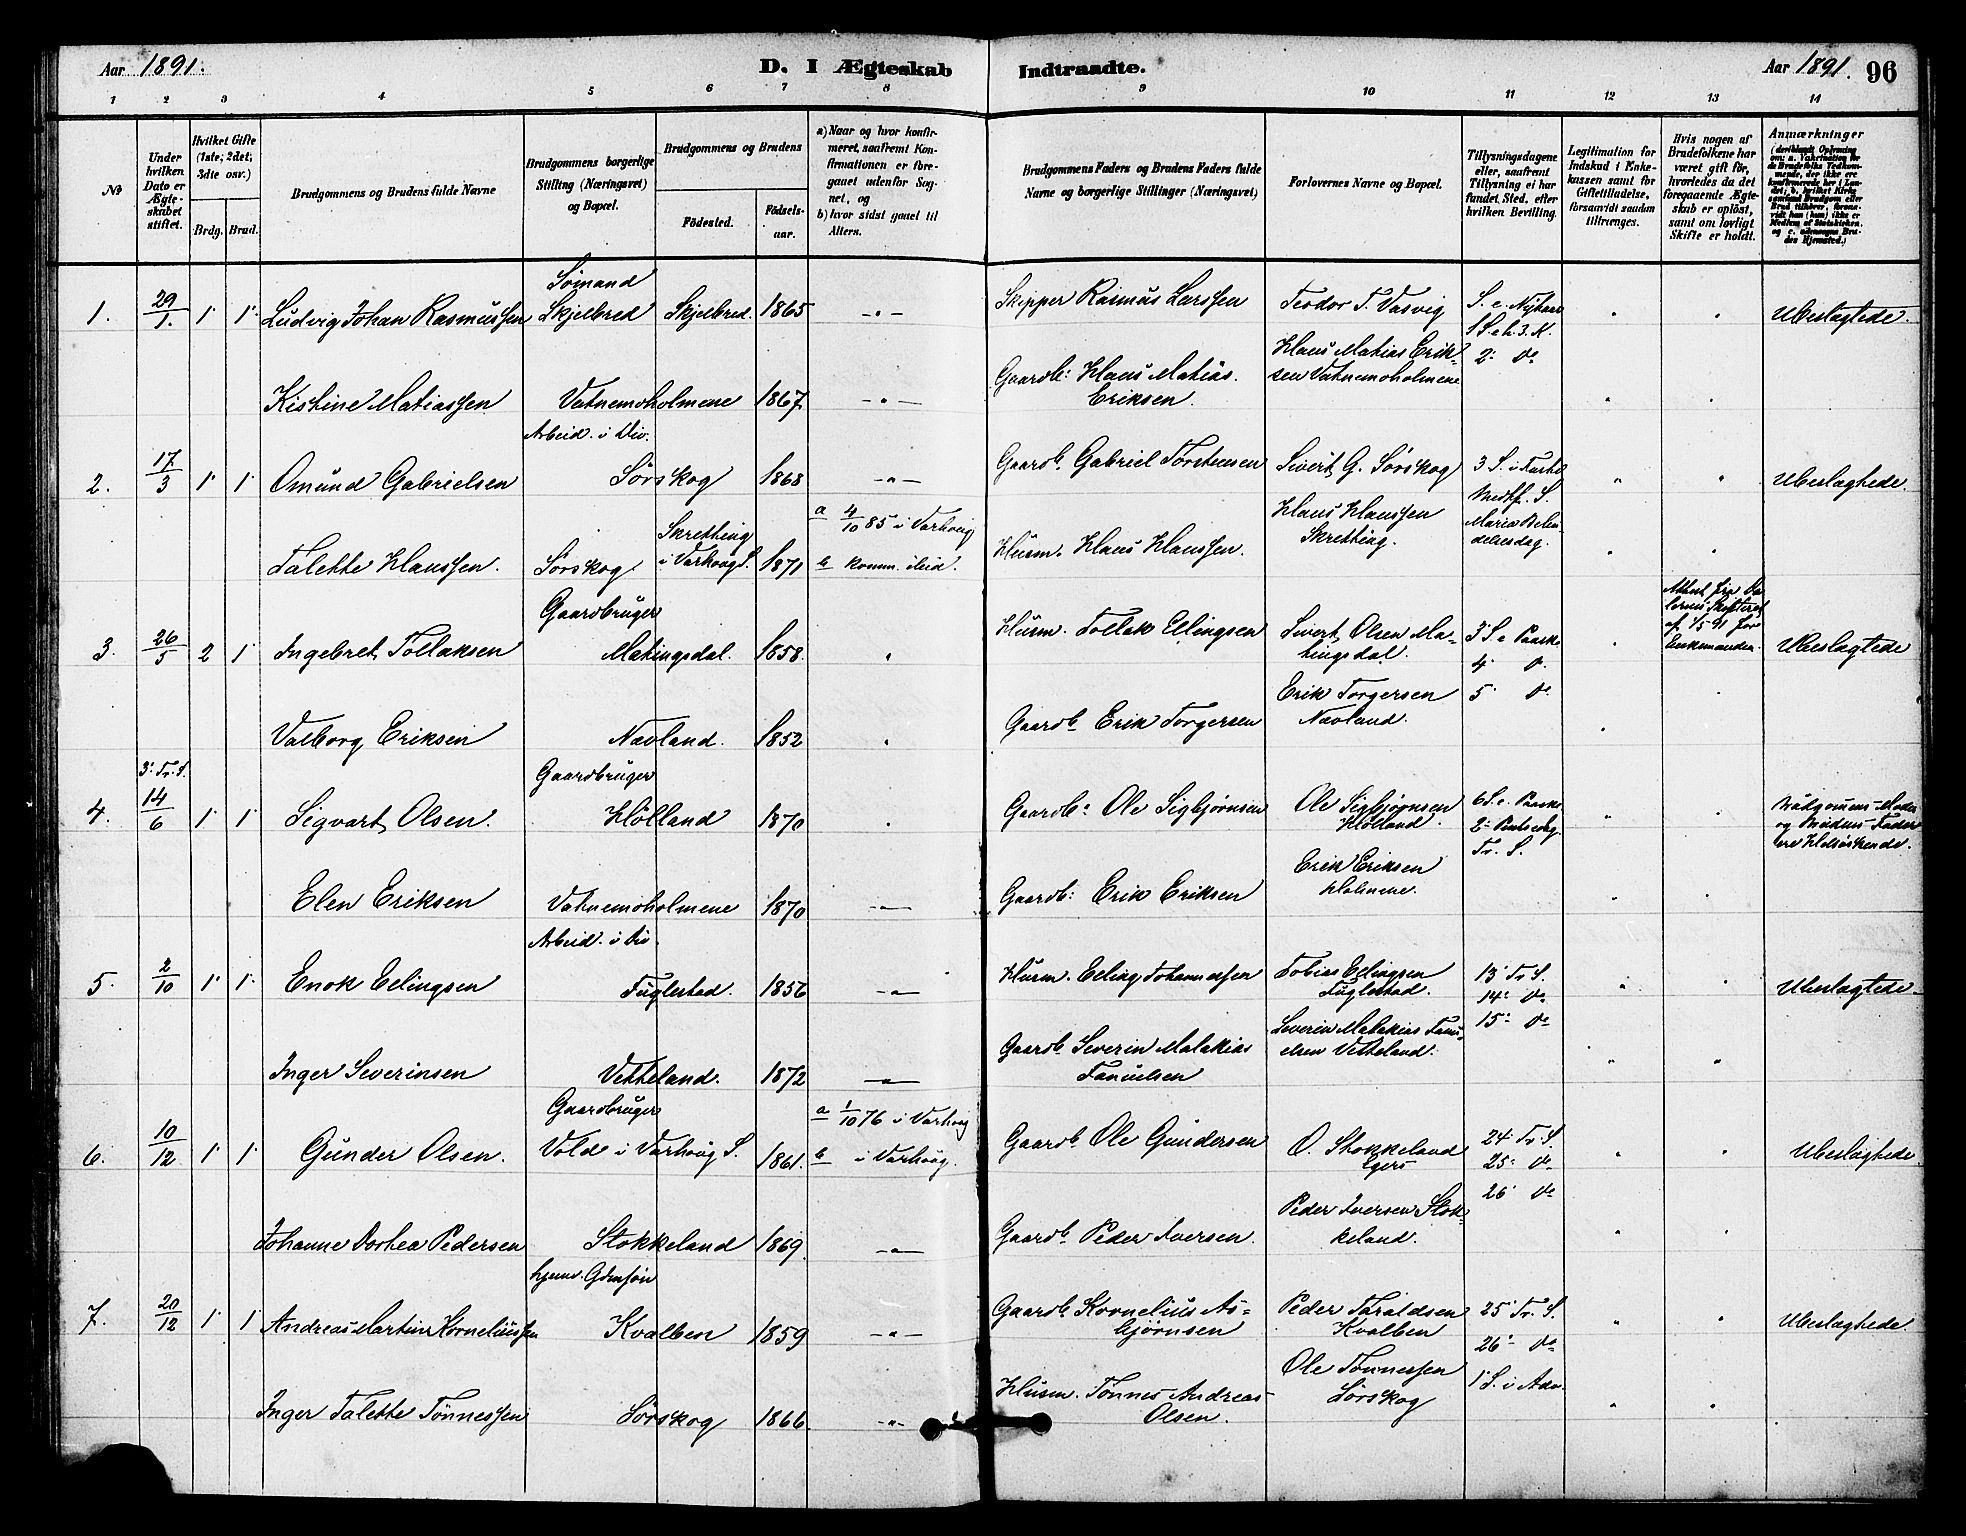 Aar 1891.
D. I Ægteskab Indtraadte.
Aar 1891. 96
1 2 3 4 5 6 7 8 9 10 11 12 13 14
№
Under hvilken Dato er Ægteskabet stiftet.
Hvilket Gifte (1ste, 2det, 3die osv.)
Brdg. Brud.
Brudgommens og Brudens fulde Navne
Brudgommens borgerlige Stilling (Næringsvei) og Bopæl.
Brudgommens og Brudens
Fødested.
Fødselsaar.
a) Naar og hvor konfirmeret, saafremt Konfirmationen er foregaaet udenfor Sognet, og
b) hvor sidst gaaet til Alters.
Brudgommens Faders og Brudens Faders fulde Navne og borgerlige Stillinger (Næringsvei)
Forlovernes Navne og Bopæl.
Tillysningsdagene eller, saafremt Tillysning ei har fundet Sted, efter hvilken Bevilling.
Legitimation for Indskud i Enkekassen samt for Giftetilladelse, forsaavidt saadan tiltrænges.
Hvis nogen af Brudefolkene har været gift før, hvorledes da det foregaaende Ægteskab er opløst, samt om lovligt Skifte er holdt.
Anmærkninger
1. 29/1. 1 1 Ludvig Johan Rasmussen Sømand Skjelbred Skjelbred 1865 -"- Skipper Rasmus Larssen Teodor T. Vasvig S. e. Nytaar 1 S. e. h. 3. K. " " Ubeslægtede.
Kistine Matiassen Vatnemoholmene 1867 -"- Gaardb: Klaus Matias Eriksen. Klaus Matias Eriksen Vatnemoholmene 2: do " "
2. 17/3 1 1 Omund Gabrielsen Arbeid. i Div. Sørskog 1868 -"- Gaardb. Gabriel Torstensen Sivert G. Sørskog 3 S. i Faste " " Ubeslægtede.
Talette Klaussen. Sørskog Skretting i Varhoug S. 1871 a 4/10 85 i Varhoug b Husm. Klaus Klaussen. Klaus Klaussen Skretting. Midtf. S. Mariæ " "
3. 26/5 2 1 Ingebret Tollaksen Gaardbruger Matingsdal. 1858 " Husm. Tollak Ellingsen Sivert Olsen Matingsdal. 3 S. e. Paaske 4 do " Attest fra af 1/5 91 for Enkemanden. Ubeslægtede
Valborg Eriksen Navland. 1852 " Gaardb Erik Torgersen Erik Torgersen Navland. 5 do " "
4. 3: Tr. S. 14/6 1 1 Sigvart Olsen. Gaardbruger Hølland 1870 " Gaardb: Ole Sigbjørnsen Ole Sigbjørnsen Hølland. 6 S. e. Paaske 2: Pintsedag Tr. S. " " Brudgomens Moder og Brudens Fader ere Helsøskende.
Elen Eriksen Vatnemoholmene 1870 -"- Gaardb: Erik Eriksen Erik Eriksen Holmene. " "
5. 2/10 1 1 Enok Ellingsen Arbeid. i Div. Fuglestad. 1856 -"- Husm. Elling Johannessen Tobias Ellingsen Fuglestad. 13 Tr. S. 14: do " " Ubeslægtede
Inger Severinsen Vetteland. 1872 -"- Gaardb Severin Malakias Fanuelsen Severin Malakias Fanuelsen Vetteland. 15: do " "
6. 10/12 1 1 Gunder Olsen. Gaardbruger Vold i Varhoug S. 1861. a 1/10 76 i Varhoug b i Varhoug. Gaardb Ole Gundersen O. Stokkeland Egers 24 Tr. S. 25: do " " Ubeslægtede
Johanne Dorhea Pedersen Stokkeland 1869 -"- Gaardb Peder Iversen. Peder Iversen Stokkeland. 26 do " "
7. 20/12 1 1 Andreas Martin Korneliussen hjemv. Gdmsøn Kvalben 1859 -"- Gaardb Kornelius Asbjørnsen Peder Taraldsen Kvalben 25 Tr. S. 26: do " " Ubeslægtede.
Inger Talette Tønnessen Sørskog 1866 -"- Husm. Tønnes Andreas Olsen. Ole Tønnessen Sørskog 1 S. i Adv. " "